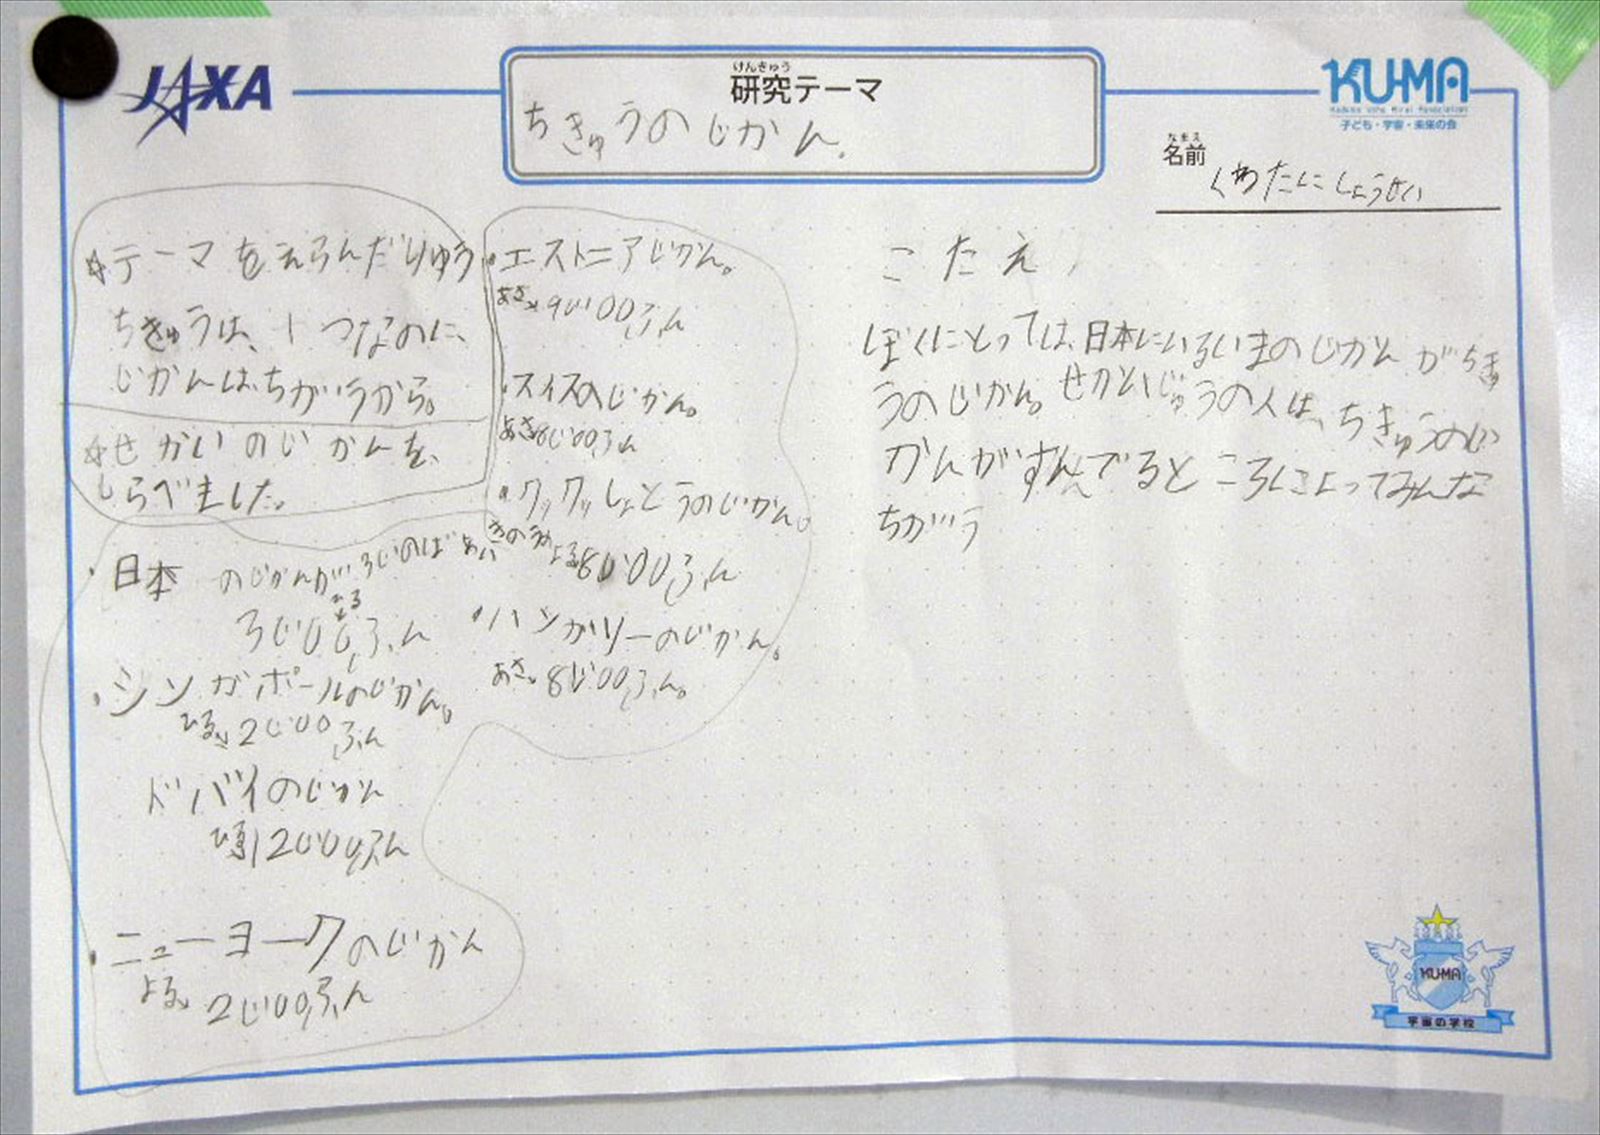 JAXA
けんきゅう
研究テーマ
ちきゅうのじかん。
KU-MA
Kodomo Uchu Mirai Association
子ども・宇宙・未来の会
なまえ
名前
くわたにしょうせい
☆テーマをえらんだりゆう
ちきゅうは、1つなのに、
じかんは、ちがうから。
☆せかいのじかんを、
しらべました。
・日本のじかんが、3じのばあい
ひる
3じ00ふん
・シンガポールのじかん。
ひる、2じ00ふん
ドバイのじかん
12じ00ふん
・ニューヨークのじかん
よる、2じ00ふん
・エストニアじかん。
あさ、9じ00ふん
・スイスのじかん。
あさ8じ00ふん
・クックしょとうのじかん。
きのうのよる8じ00ふん
・ハンガリーのじかん。
あさ、8じ00ふん。
こたえ
ぼくにとっては、日本にいるいまのじかんがちきゅ
うのじかん。せかいじゅうの人は、ちきゅうのじ
かんがすんでるところによってみんな
ちがう
KUMA
宇宙の学校